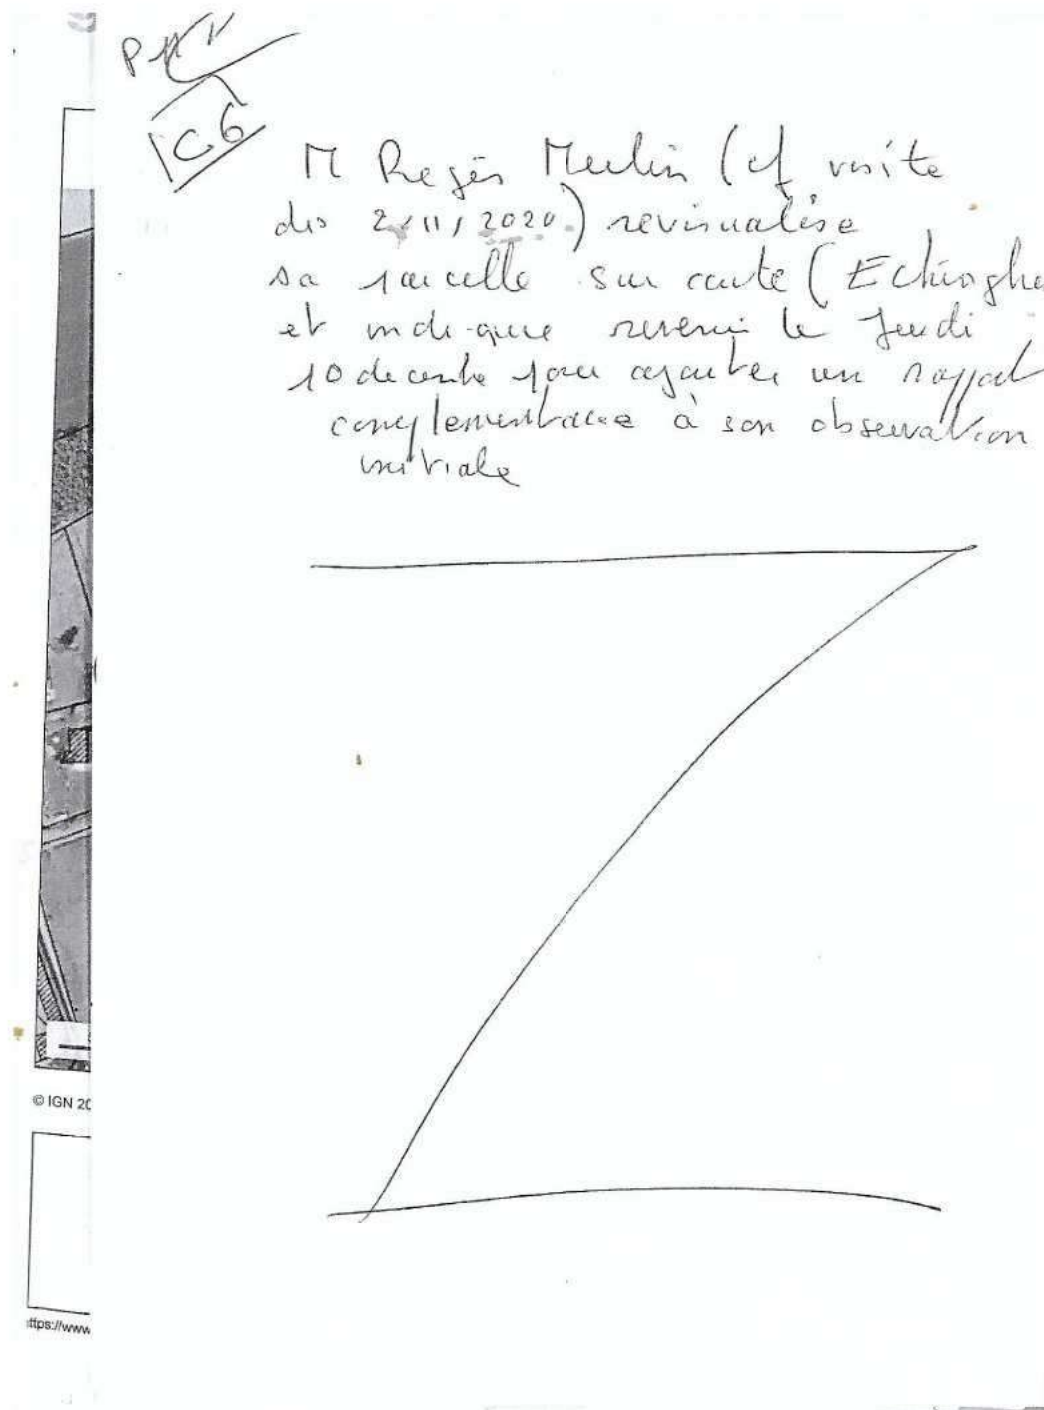 C6
M Regis Merlin (cf visite
du 2/11/2020.) revisualise
sa parcelle sur carte (Echinghe
et indique revenir le Jeudi
10 decembre pour ajouter un rapport
complementaire à son observation
initiale
© IGN 20
ttps://www